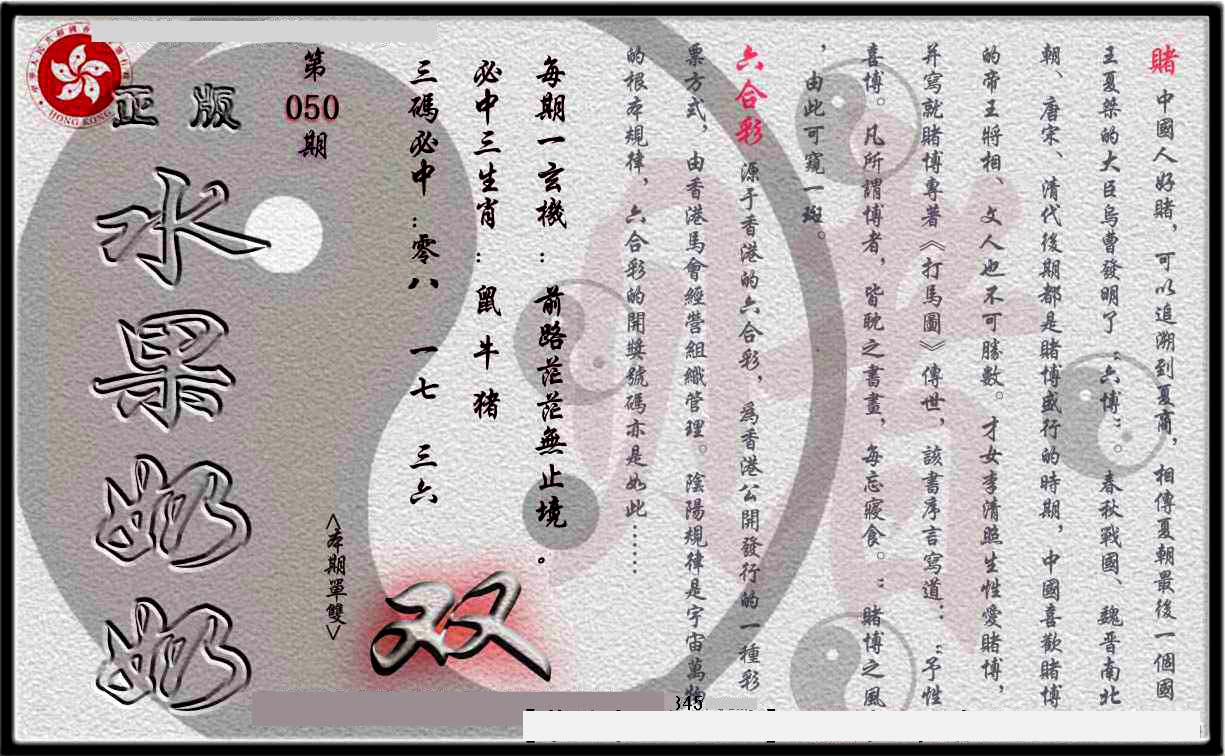 賭 中國人好賭，可以追溯到夏商，相傳夏朝最後一個國
王夏桀的大臣烏曹發明了“六博”。春秋戰國、魏晋南北
朝、唐宋、清代後期都是賭博盛行的時期，中國喜歡賭博
的帝王將相、文人也不可勝數。才女李清照生性愛賭博，
并寫就賭博專著《打馬圖》傳世，該書序言寫道：“予性
喜博。凡所謂博者，皆耽之書畫，每忘寢食。”賭博之風
，由此可窺一斑。
六合彩 源于香港的六合彩，爲香港公開發行的一種彩
票方式，由香港馬會經營組織管理。陰陽規律是宇宙萬物
的根本規律，六合彩的開獎號碼亦是如此……
每期一玄機：前路茫茫無止境。
必中三生肖：鼠牛猪
三碼必中：零八 一七 三六
<本期單雙>
双
第
050
期
正版
水果奶奶
HONG KONG
345